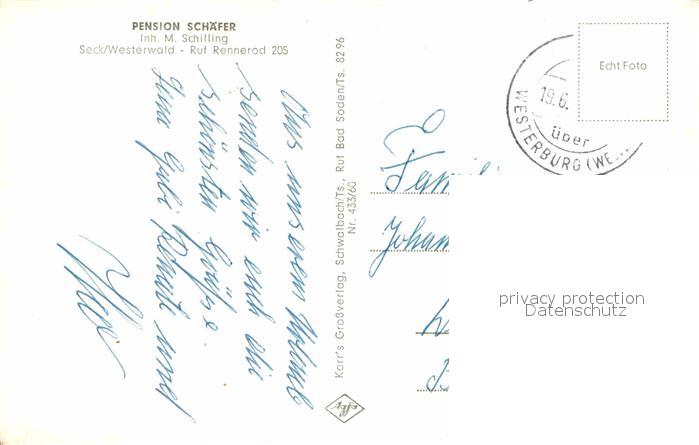 PENSION SCHÄFER
Inh. M. Schilling
Seck/Westerwald - Ruf Rennerod 205
Aus unserem Urlaub
senden wir euch die
schönsten Grüße.
und
Max
Korr's Großverlag, Schwalbach/Ts., Ruf Bad Soden/Ts. 8296
Nr. 433/60
Agfa
Echt Foto
19.6.
über
WESTERBURG (WE
Fami
Joham
privacy protection
Datenschutz